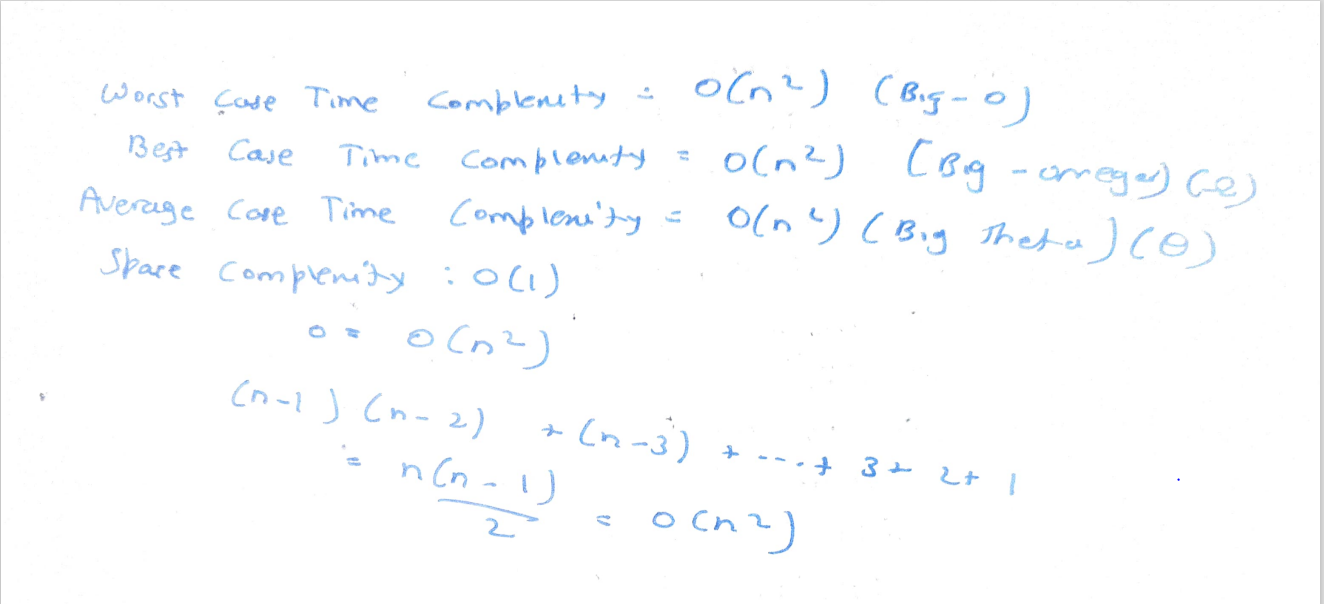 Worst Case Time Complexity : O(n²) (Big-O)
Best Case Time Complexity = O(n²) (Big-omega) (Ω)
Average Case Time Complexity = O(n²) (Big theta) (θ)
Space Complexity : O(1)
0 = O(n²)
(n-1) (n-2) + (n-3) + ---.+ 3+ 2+ 1
= n(n-1)/2 = O(n²)